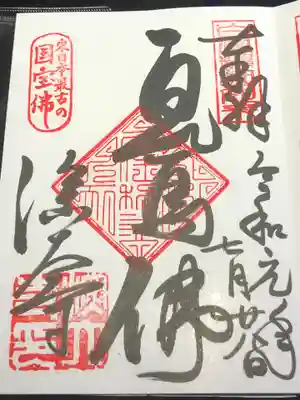 奉拝
令和元年
七月廿八日
白鳳佛
東日本最古の
国宝佛
深大寺